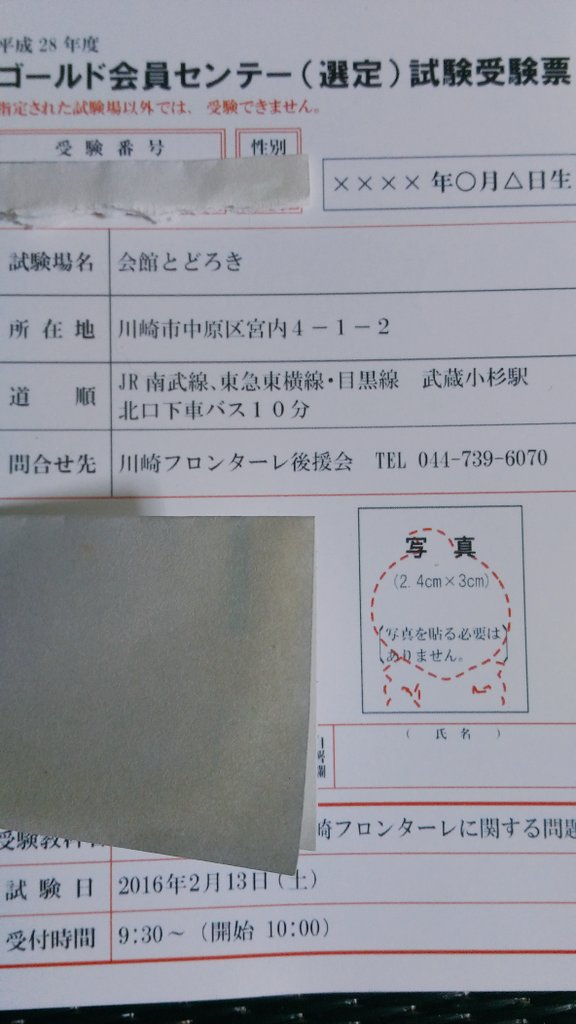 平成28年度
ゴールド会員センテー(選定)試験受験票
指定された試験場以外では、受験できません。
受験番号
性別
××××年○月△日生
試験場名 会館とどろき
所在地 川崎市中原区宮内4-1-2
道順 JR南武線、東急東横線・目黒線 武蔵小杉駅
北口下車バス10分
問合せ先 川崎フロンターレ後援会 TEL 044-739-6070
写真
(2.4cm×3cm)
(写真を貼る必要は
ありません。)
(氏名)
受験教科
崎フロンターレに関する問題
試験日 2016年2月13日(土)
受付時間 9:30~(開始 10:00)